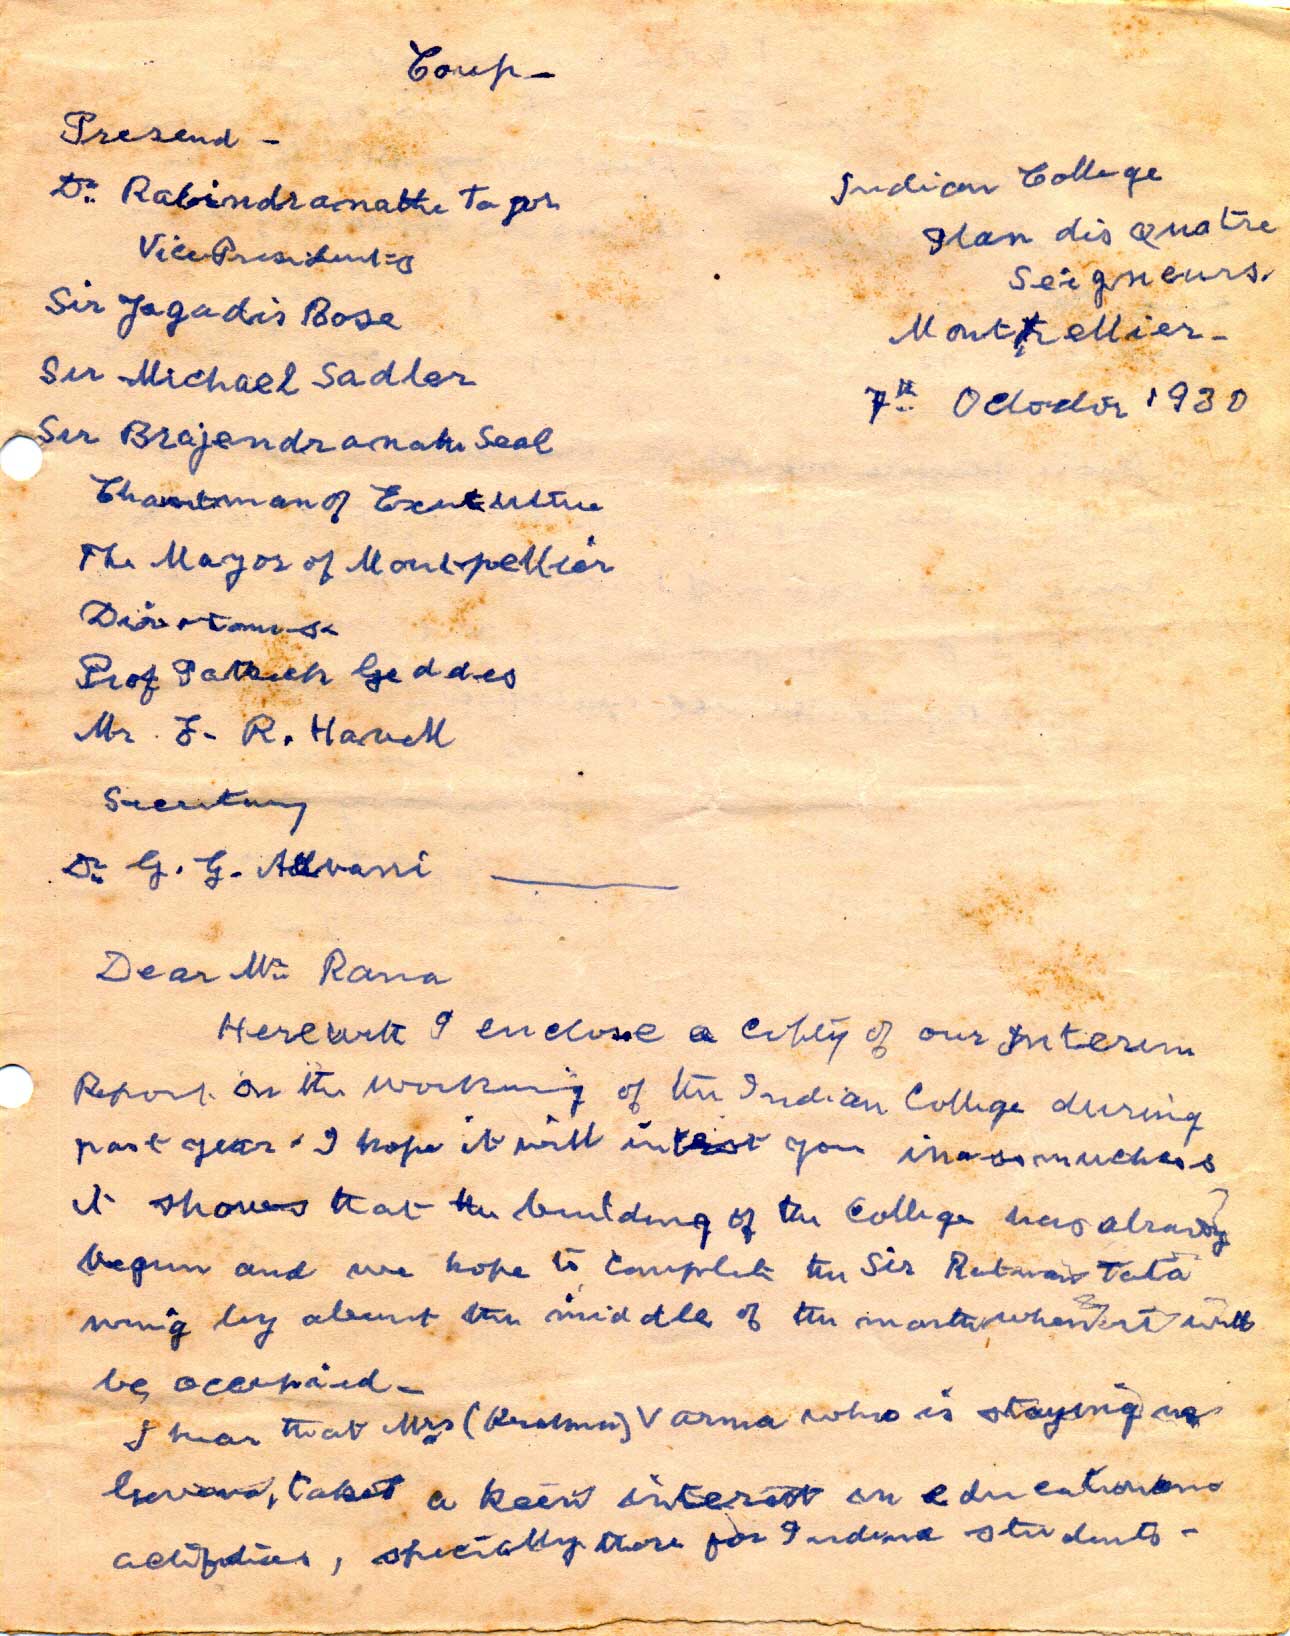 Coup-
Presend -
Dr. Rabindranathe Tagor
Vice Presidents
Sir Jagadis Bose
Sir Michael Sadler
Sir Brajendranath Seal
Chairman of Executive
The Mayor of Montpellier
Directours
Prof Patrick Geddes
Mr. E. R. Havell
Secretary
Dr. G. G. Advani
Indian College
Plan dis Quatre
Seigneurs.
Montpellier -
7th October 1930
Dear Mr. Rana
Herewith I enclose a copy of our Interim
Report on the working of the Indian College during
past year. I hope it will interest you inasmuch as
it shows that the building of the College was already
begun and we hope to complete the Sir Ratan Tata
wing by about the middle of the month when it will
be occupied -
I hear that Mrs (Krishna) Varma who is staying
Geneva, takes a keen interest in educational
activities, specially those for Indian students -